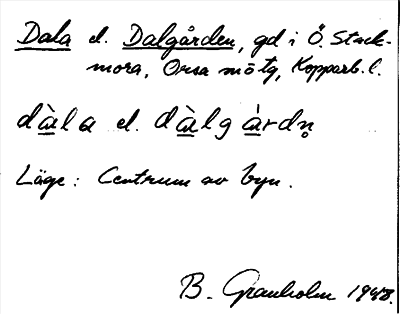 Dala el. Dalgården, gd i Ö. Stack-
mora, Orsa sn o tg, Kopparb. l.
dàla el. dàlgàrdṇ
Läge: Centrum av byn.
B. Granholm 1948.